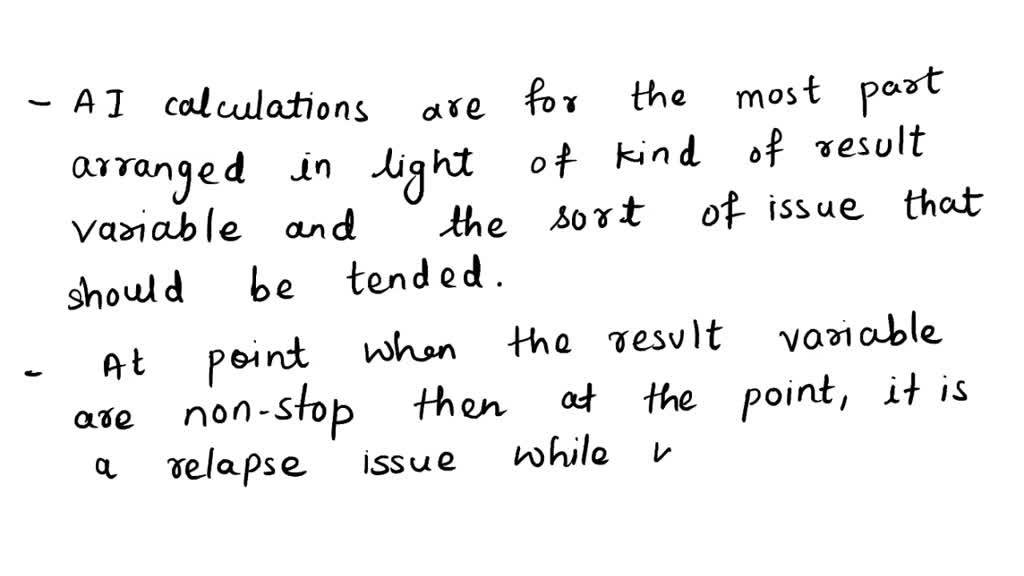 - AI calculations are for the most part
arranged in light of kind of result
variable and the sort of issue that
should be tended.
- At point when the result variable
are non-stop then at the point, it is
a relapse issue while